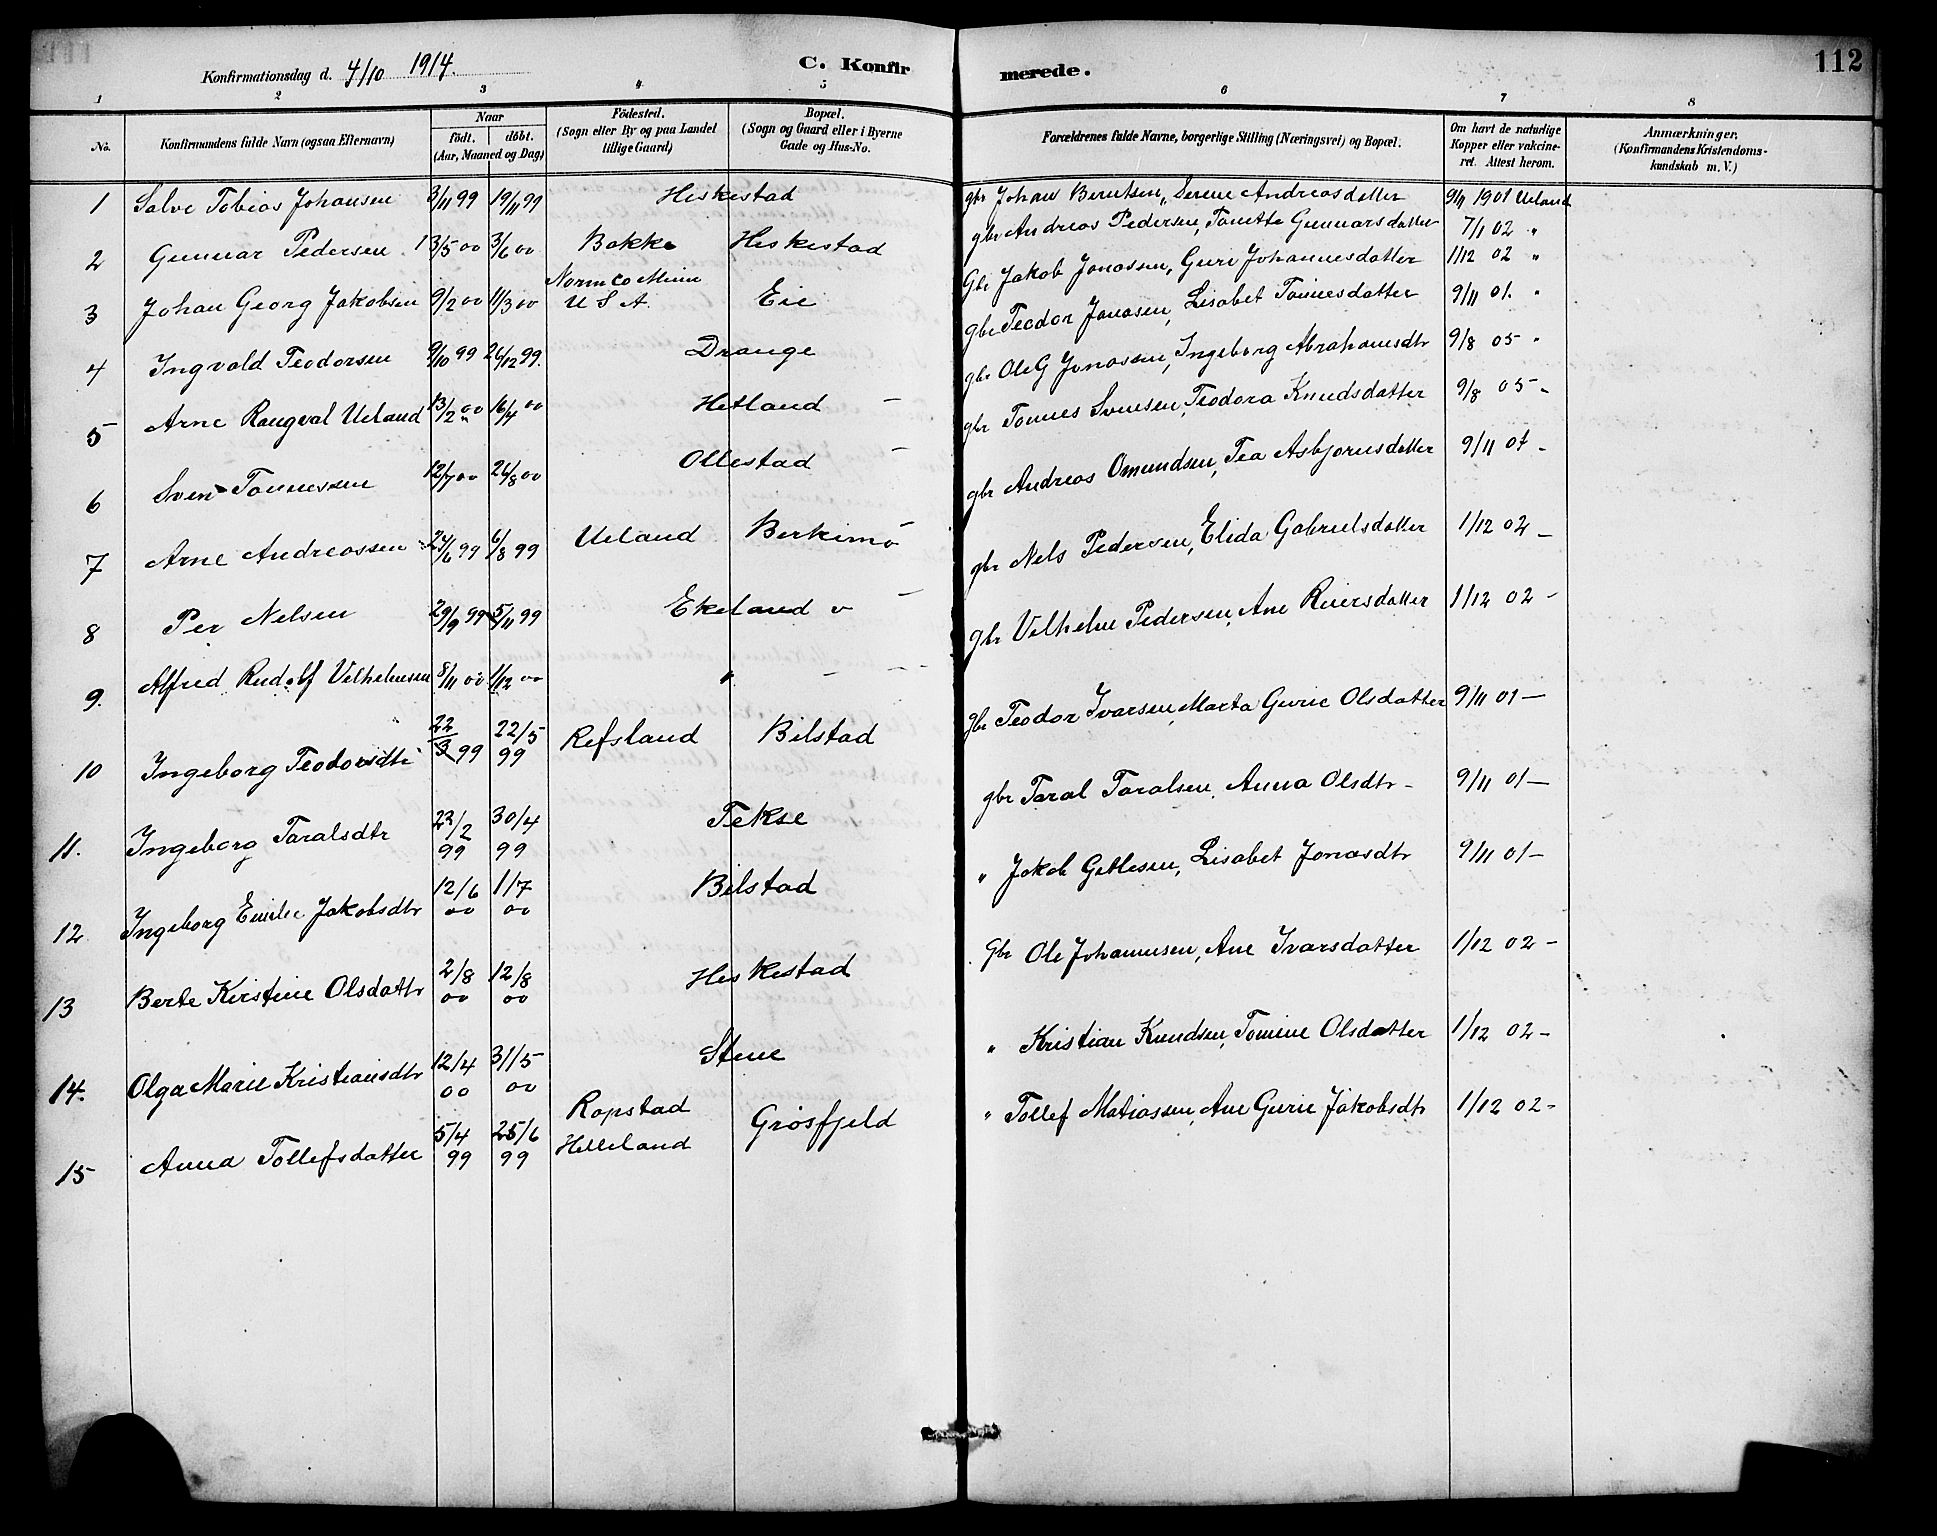 Konfirmationsdag d. 4/10 1914. C. Konfirmerede. 112
1 2 3 4 5 6 7 8
No. Konfirmandens fulde Navn (ogsaa Efternavn) Naar födt. döbt. (Aar, Maaned og Dag) Födested. (Sogn eller By og paa Landet tillige Gaard) Bopæl. (Sogn og Gaard eller i Byerne Gade og Hus-No. Forældrenes fulde Navne, borgerlige Stilling (Næringsvei) og Bopæl. Om havt de naturlige Kopper eller vakcineret. Attest herom. Anmærkninger. (Konfirmandens Kristendomskundskab m. V.)
1 Salve Tobias Johansen 3/11 99 19/11 99 Heskestad gbr Johan Berntsen, Serene Andreasdatter 9/11 1901 Ueland
2 Gunnar Pedersen 13/5 00 3/6 00 Bakke Heskestad gbr Andreas Pedersen, Tonette Gunnarsdatter 7/1 02 "
3 Johan Georg Jakobsen 9/2 00 11/3 00 Norm Co Minn U S A. Eie Gbr Jakob Jonassen, Guri Johannesdatter 1/12 02 "
4 Ingvald Teodorsen 9/10 99 26/12 99. Drange gbr Teodor Jonasen, Lisabet Tønnesdatter 9/11 01. "
5 Arne Rangval Ueland 13/2 00 16/4 00 Hetland - gbr Ole G Jonassen, Ingeborg Abrahamsdtr 9/8 05 "
6 Sven Tønnessen 12/7 00 26/8 00 Ollestad - gbr Tønnes Svensen, Teodora Knudsdatter 9/8 05 -
7 Arne Andreassen 24/6 99 6/8 99 Ueland Berkimo gbr Andreas Omundsen, Tea Asbjørnsdatter 9/11 01 -
8 Per Nelsen 29/9 99 5/11 99 Ekeland v - gbr Nels Pedersen, Elida Gabrielsdatter 1/12 02 -
9. Alfred Rudolf Vilhelmsen 8/11 00 1/12 00 " - gbr Vilhelm Pedersen, Ane Reiersdatter 1/12 02 -
10 Ingeborg Teodorsdtr 22/3 99 22/5 99 Refsland Bilstad gbr Teodor Ivarsen, Marta Gurie Olsdatter 9/11 01 -
11. Ingeborg Taralsdtr 22/2 99 30/4 99 Tekse gbr Taral Taralsen, Anna Olsdtr - 9/11 01 -
12 Ingeborg Emilie Jakobsdtr 12/6 00 1/7 00 Bilstad " Jakob Getlesen, Lisabet Jonasdtr 9/11 01 -
13 Berte Kirstine Olsdattr 2/8 00 12/8 00 Heskestad Gbr Ole Johannesen, Ane Ivarsdatter 1/12 02 -
14. Olga Marie Kristiansdtr 12/4 00 31/5 00 Stene " Kristian Knudsen, Tomine Olsdatter 1/12 02 -
15 Anna Tollefsdatter 5/4 99 25/6 99 Ropstad Helleland Grösfjeld " Tollef Matiassen, Ane Gurie Jakobsdtr 1/12 02 -